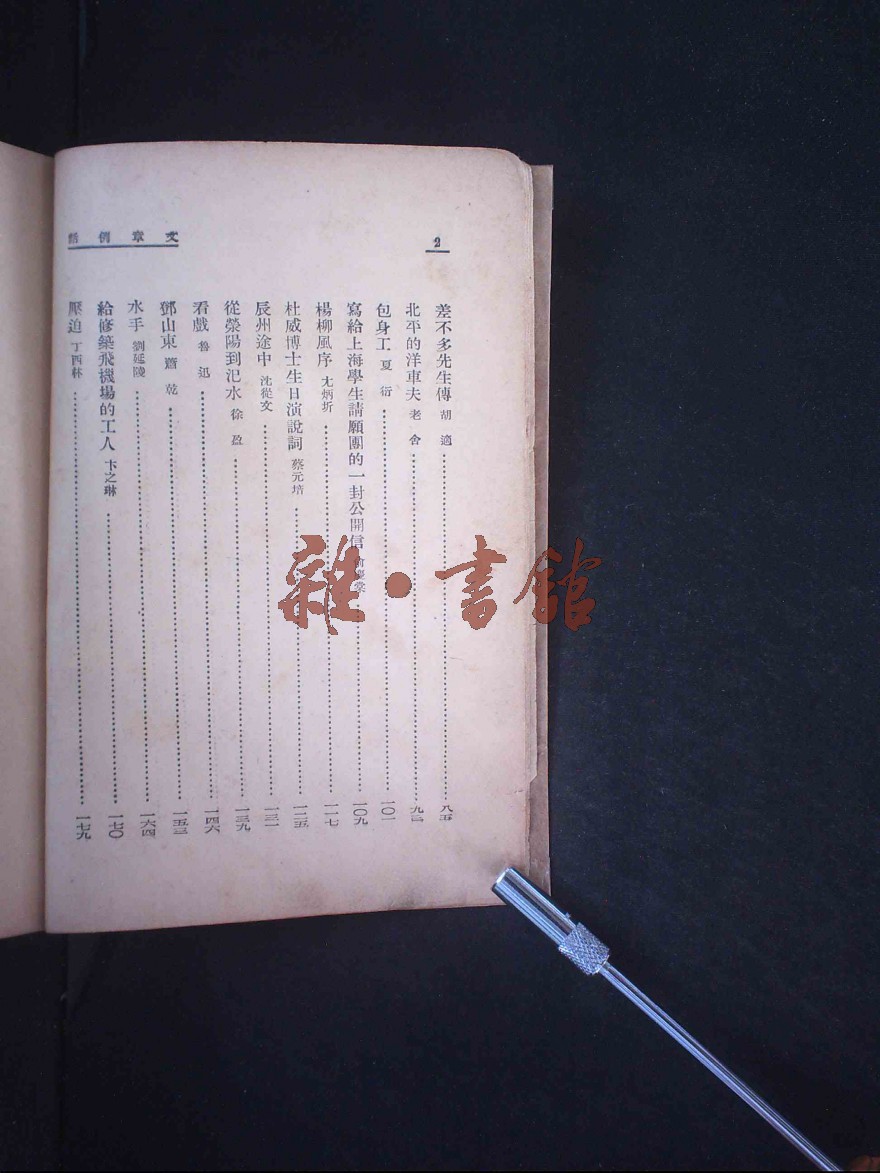 2
文章例話
差不多先生傳 胡適 八五
北平的洋車夫 老舍 九三
包身工 夏衍 一〇一
寫給上海學生請願團的一封公開信 一〇九
楊柳風序 尤炳圻 一一七
杜威博士生日演說詞 蔡元培 一二五
辰州途中 沈從文 一三一
從滎陽到汜水 徐盈 一三九
看戲 魯迅 一四六
鄧山東 蕭乾 一五三
水手 劉延陵 一六四
給修築飛機場的工人 卞之琳 一七〇
壓迫 丁西林 一七九
雜·書館